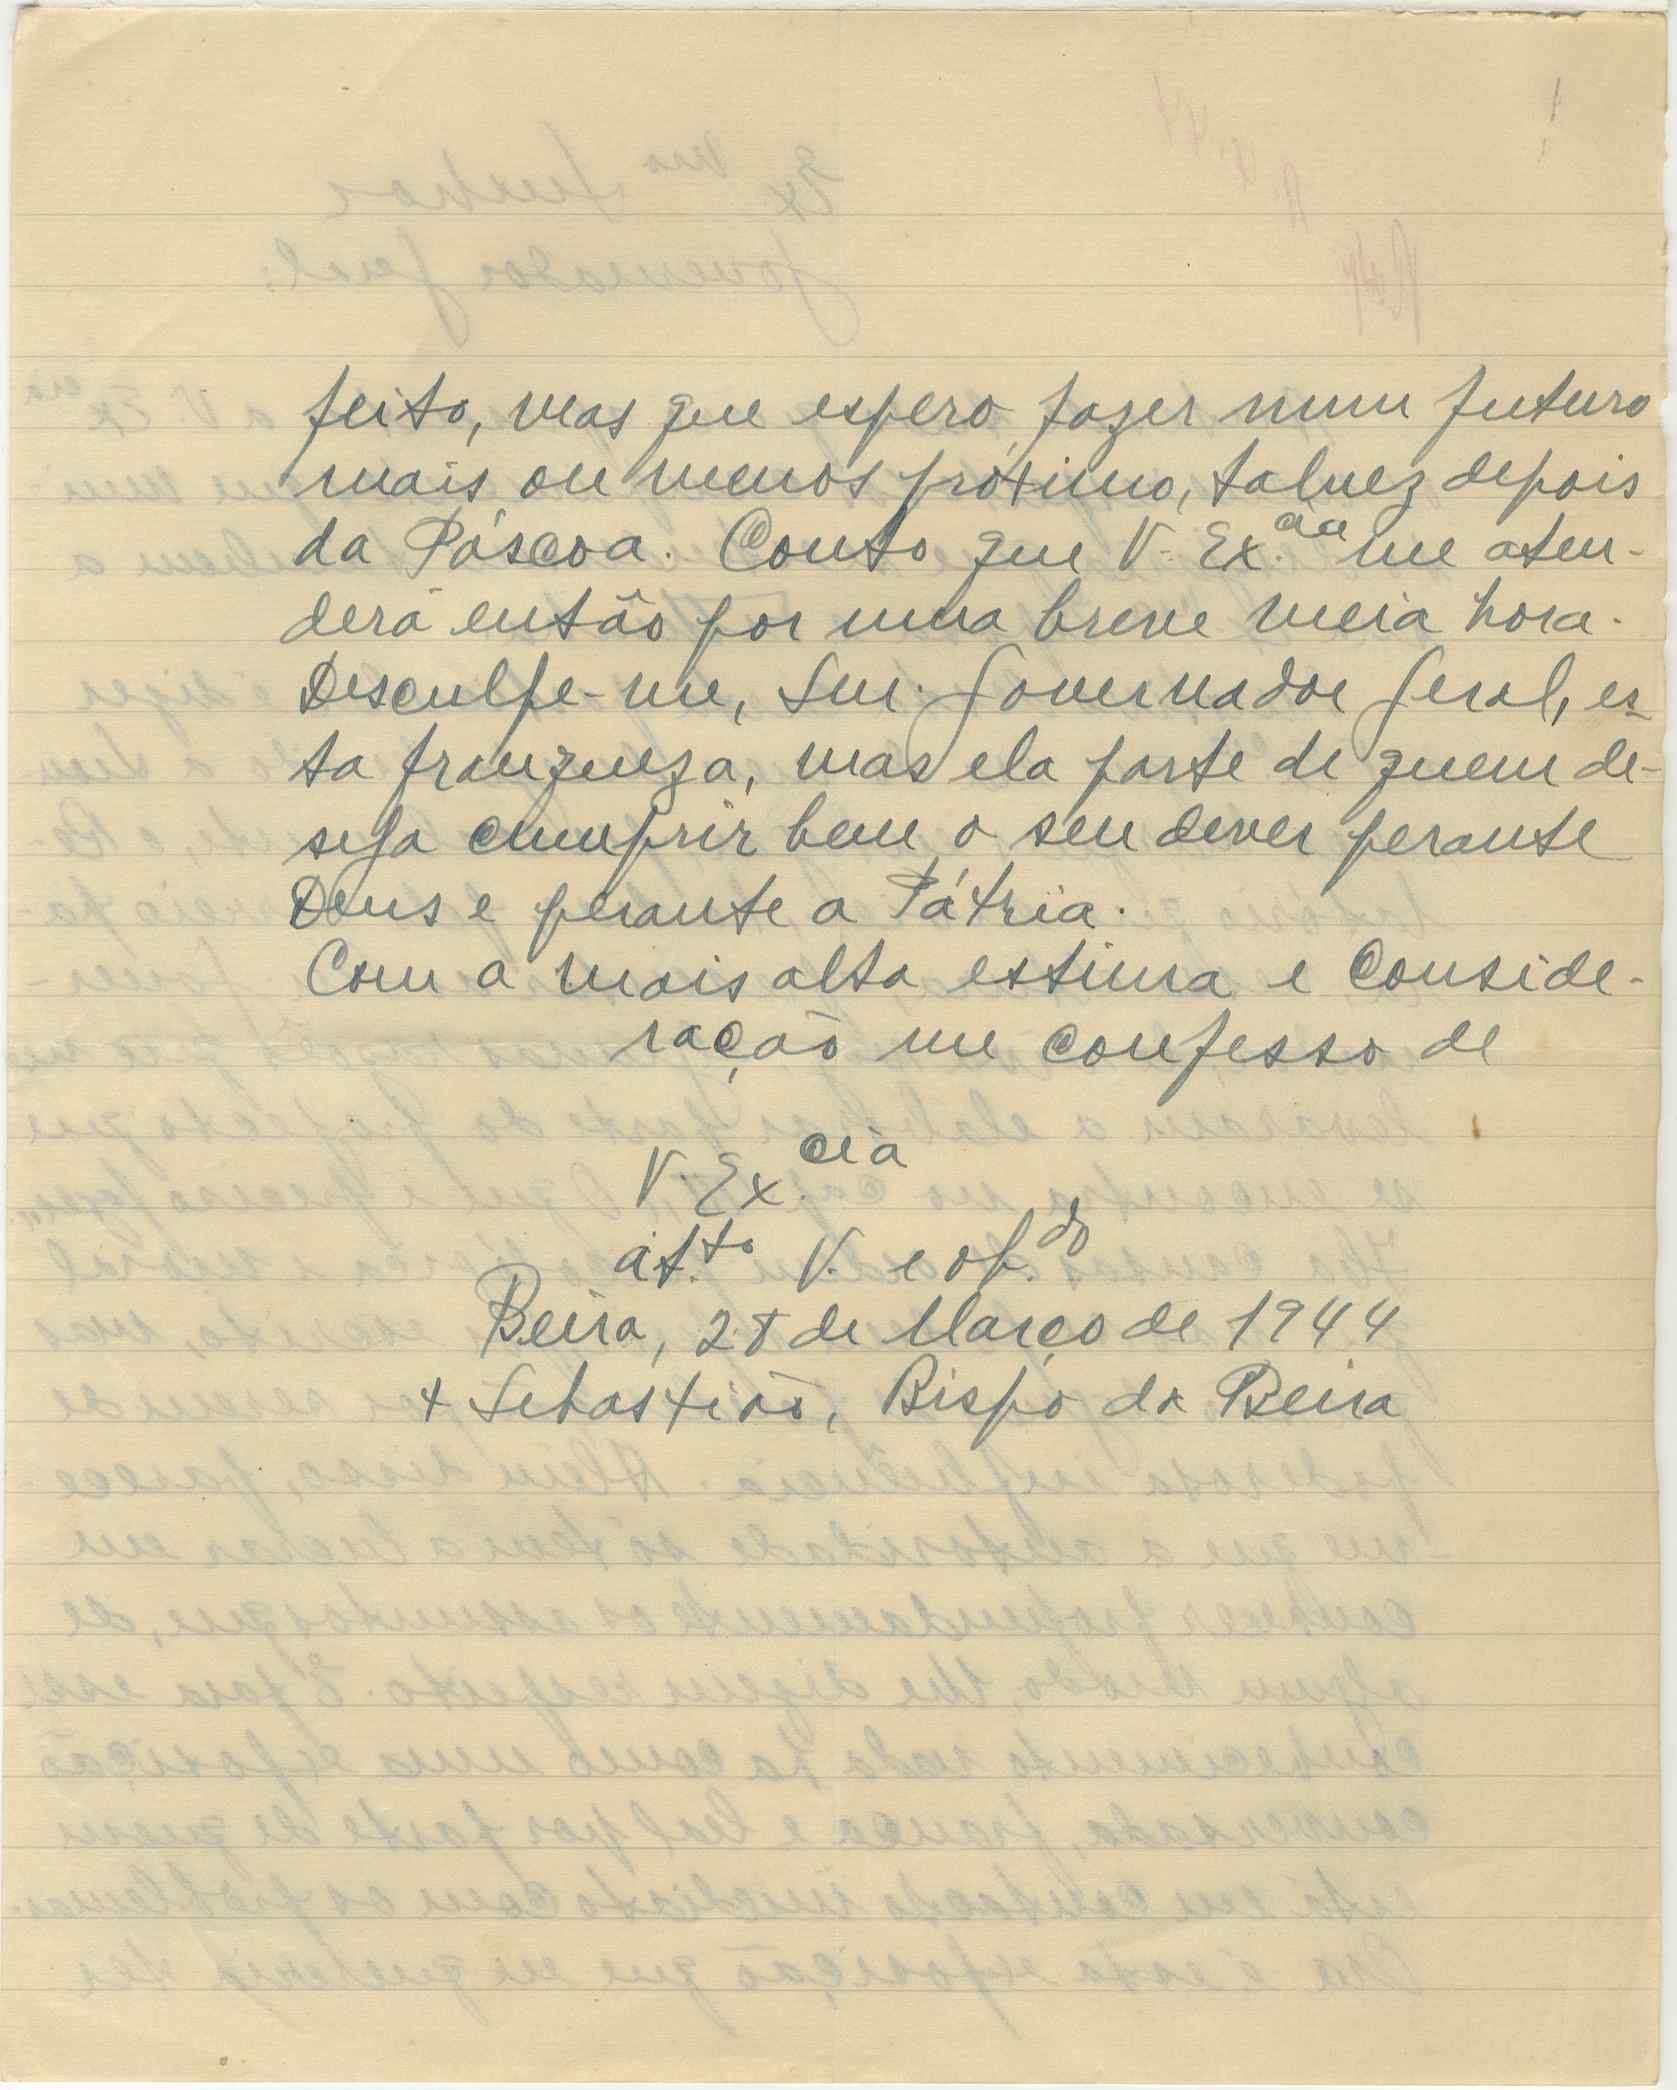 feito, mas que espero fazer num futuro
mais ou menos próximo, talvez depois
da Páscoa. Conto que V. Ex.cia me aten-
derá então por uma breve meia hora.
Desculpe-me, Snr. Governador Geral, es-
ta franqueza, mas ela parte de quem de-
seja cumprir bem o seu dever perante
Deus e perante a Pátria.
Com a mais alta estima e conside-
ração me confesso de
V. Ex.cia
at.to V. e of.do
Beira, 28 de Março de 1944
+ Sebastião, Bispo da Beira